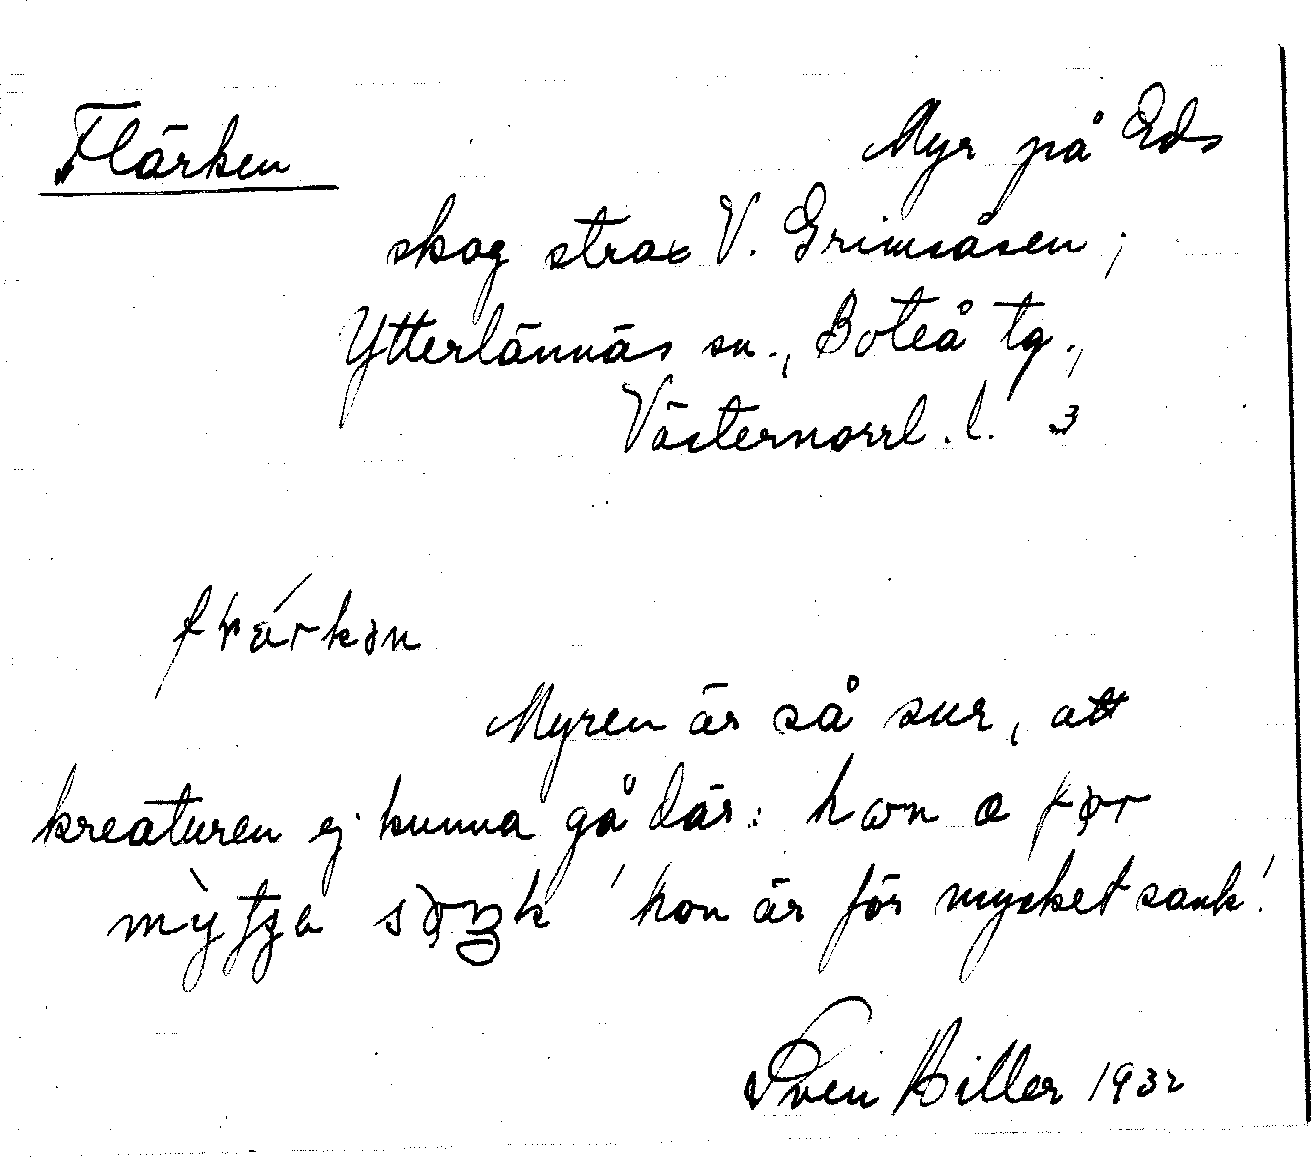 Flärken
Myr på Eds
skog strax V. Grimsåsen;
Ytterlännäs sn., Boteå tg.,
Västernorrl. l. 3
Myren är så sur, att
kreaturen ej kunna gå där:
'hon är för mycket sank'.
Sven Hiller 1932